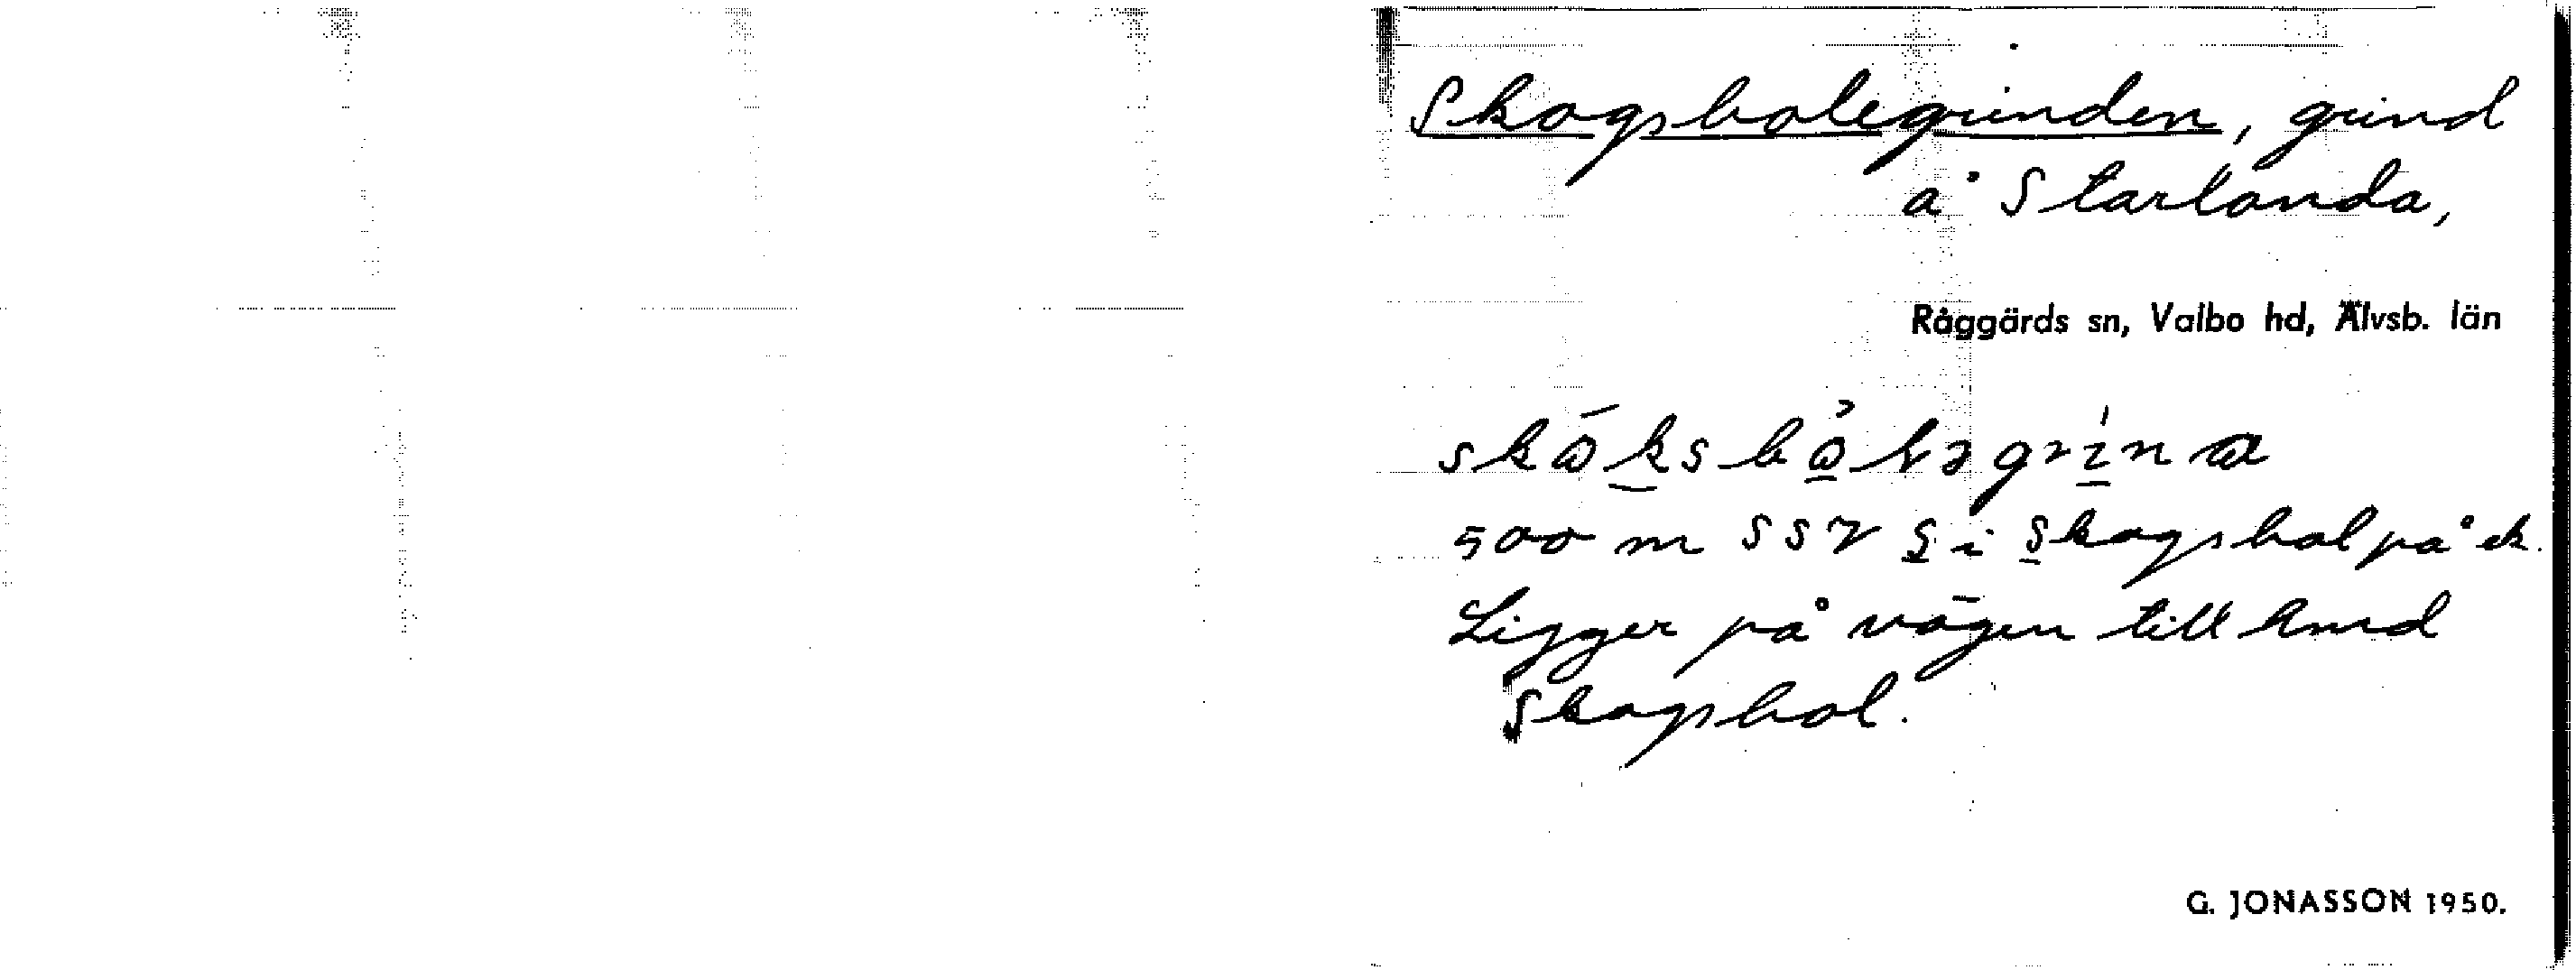 Skogsbolegrinden, grind
å Starlanda,
Råggärds sn, Valbo hd, Älvsb. län
500 m SSV S i Skogsbol på ek.
Ligger på vägen till
Skogsbol.
G. JONASSON 1950.